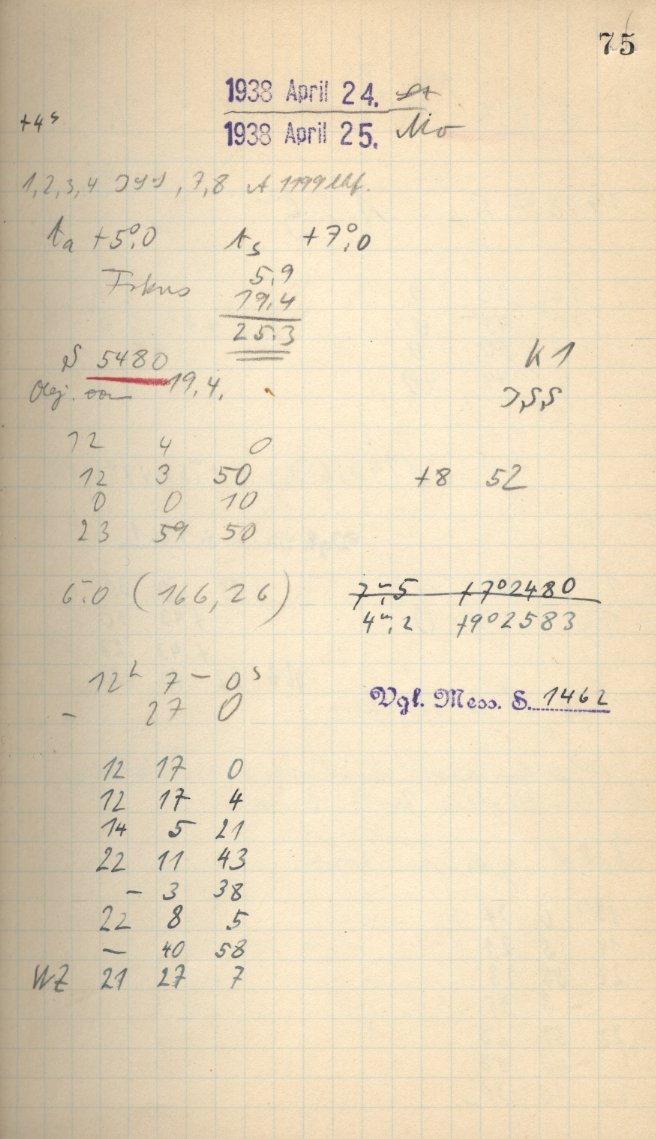 75
1938 April 24. St
1938 April 25. Mo
+4ˢ
1,2,3,4 JSS, 7,8 A
tₐ +5°.0 tₛ +7°.0
Fokus 5.9
19.4
25.3
S 5480 K1
Obj. von 19.4. JSS
12 4 0
12 3 50 +8 52
0 0 10
23 59 50
6.0 (166,26) 7ᵐ.5 +7°2480
4ᵐ.2 +9°2583
12ʰ 7ᵐ 0ˢ
- 27 0
Vgl. Mess. S. 1462
12 17 0
12 17 4
14 5 21
22 11 43
- 3 38
22 8 5
- 40 58
WZ 21 27 7